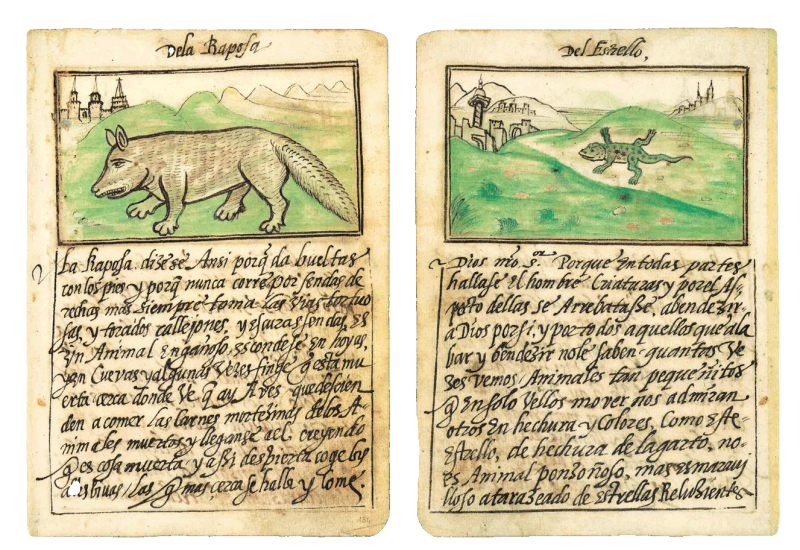 Dela Raposa
La Raposa. dizese Ansi porq̃ da bueltas
con los pies y porq̃ nunca corre por sendas de
rechas mas siempre toma las vias tortuo
sas, y torzados callejones, y escuras sendas, es
Vn Animal engañoso, esconde se en hoyas,
y en Cuevas y algunas vezes finge q̃ esta mu
erta cerca donde ve q̃ ay Aves que descien
den a comer las Carnes mortezinas delos A-
nimales muertos y lleganse ael, creyendo
q̃ es cosa muerta, y assi despierta coge las
alas bivas, las q̃ mas cerca se halla y come.
184
Del Estrello,
Dios mio s.or Porque en todas partes
hallase el hombre Criaturas y por el As-
pecto dellas se Arrebatasse, abendezir-
a Dios por si, y por todos aquellos que ala
bar y bendezir nole saben. quantas Ve
zes vemos, Animales tan pequeñitos
q̃ en solo Vellos mover nos admiran
otros en hechura y Colores, Como este
estrello, de hechura de lagarto, no-
es Animal ponsoñoso, mas es maravi
lloso atarazeado de estrellas Reluzientes